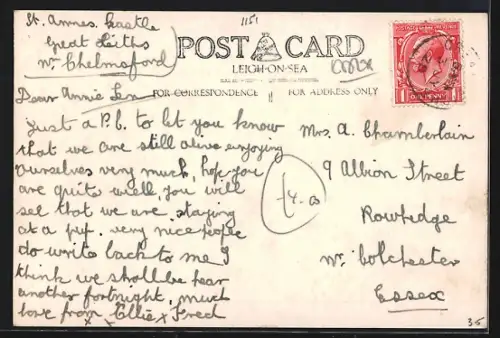 St. Annes Castle
Great Leighs
Nr Chelmsford
1151
POST CARD
LEIGH-ON-SEA
FOR CORRESPONDENCE
FOR ADDRESS ONLY
Dear Annie Len
Just a P.C. to let you know
that we are still alive enjoying
ourselves very much, hope you
are quite well, you will
see that we are staying
at a pup. very nice people
do write back to me I
think we shall be hear
another fortnight, much
love from Ellie x Fred
x x
Mrs. A. Chamberlain
9 Albion Street
Rowhedge
Nr. Colchester
Essex
£4.00
35
1 ONE PENNY 1